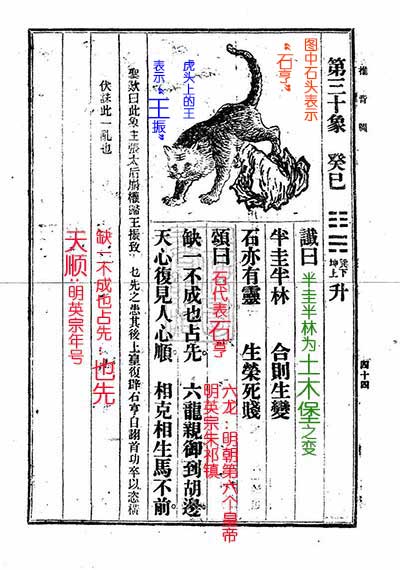 推背圖
四十四
第三十象 癸巳
巽下
坤上
升
图中石头表示
“石亨”
虎头上的王
表示“王振”
讖曰
半圭半林为土木堡之变
半圭半林 合則生變
石亦有靈 生榮死賤
頌曰
石代表石亨
六龙：明朝第六个皇帝
明英宗朱祁镇
缺一不成也占先 六龍親御到胡邊
天心復見人心順 相克相生馬不前
聖歎曰此象主張太后崩權歸王振致 也先之患其後上皇復辟石亨自詡首功卒以恣橫
伏誅此一亂也
缺一不成也占先：也先
天顺：明英宗年号